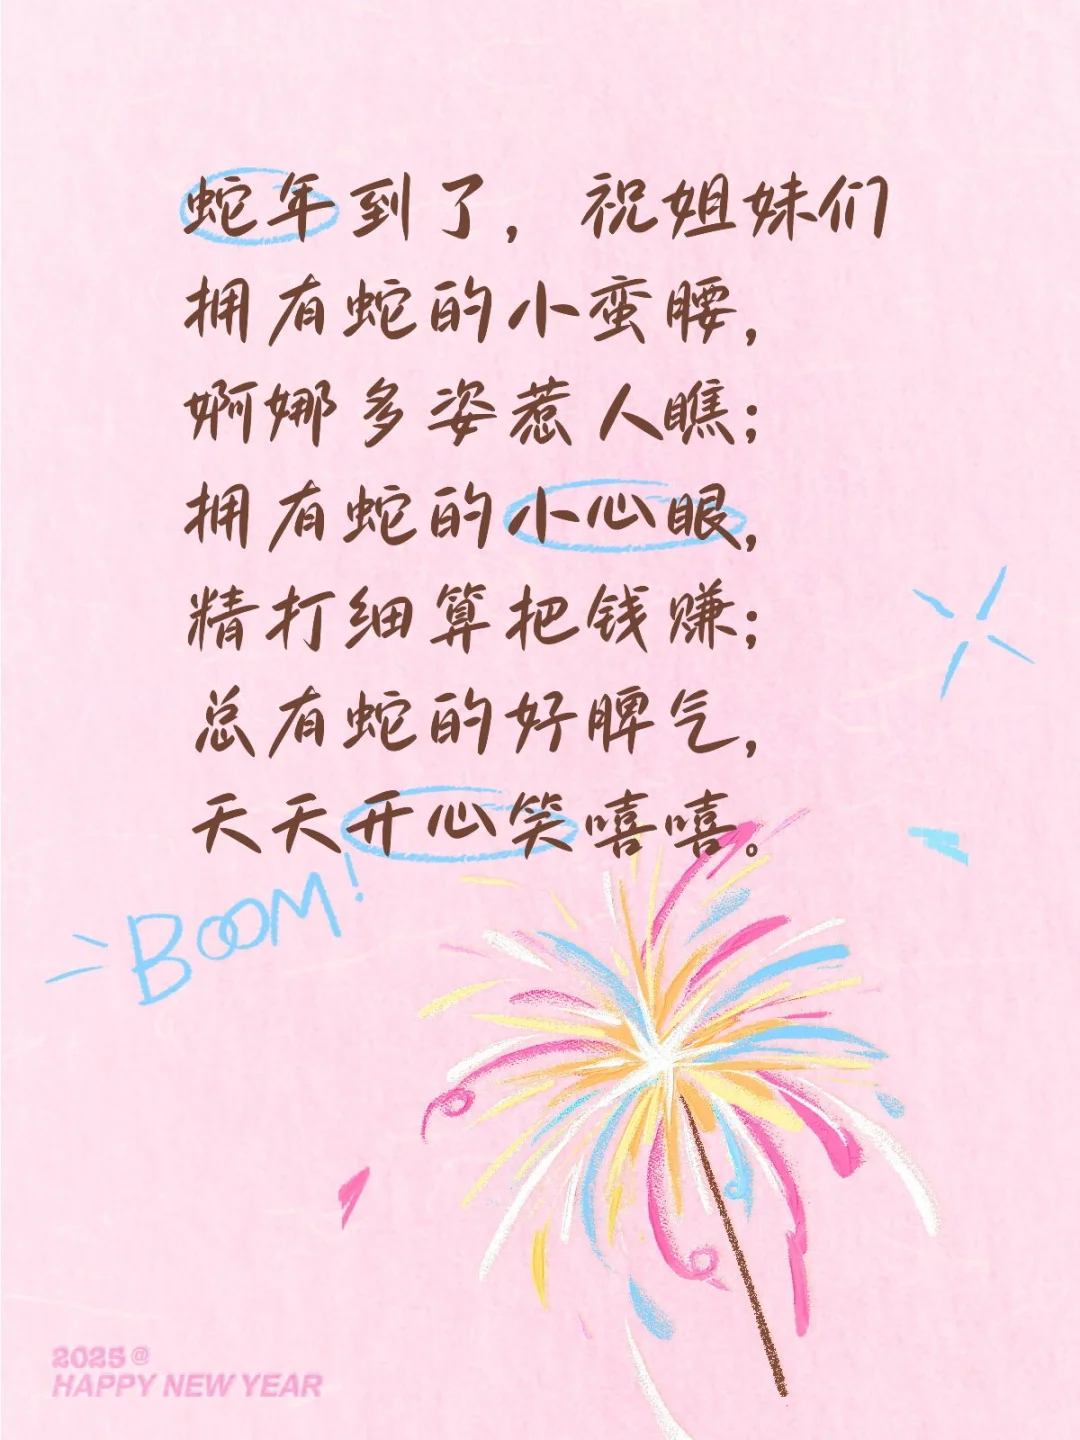 蛇年到了，祝姐妹们
拥有蛇的小蛮腰，
婀娜多姿惹人瞧；
拥有蛇的小心眼，
精打细算把钱赚；
总有蛇的好脾气，
天天开心笑嘻嘻。
BOOM!
2025@
HAPPY NEW YEAR